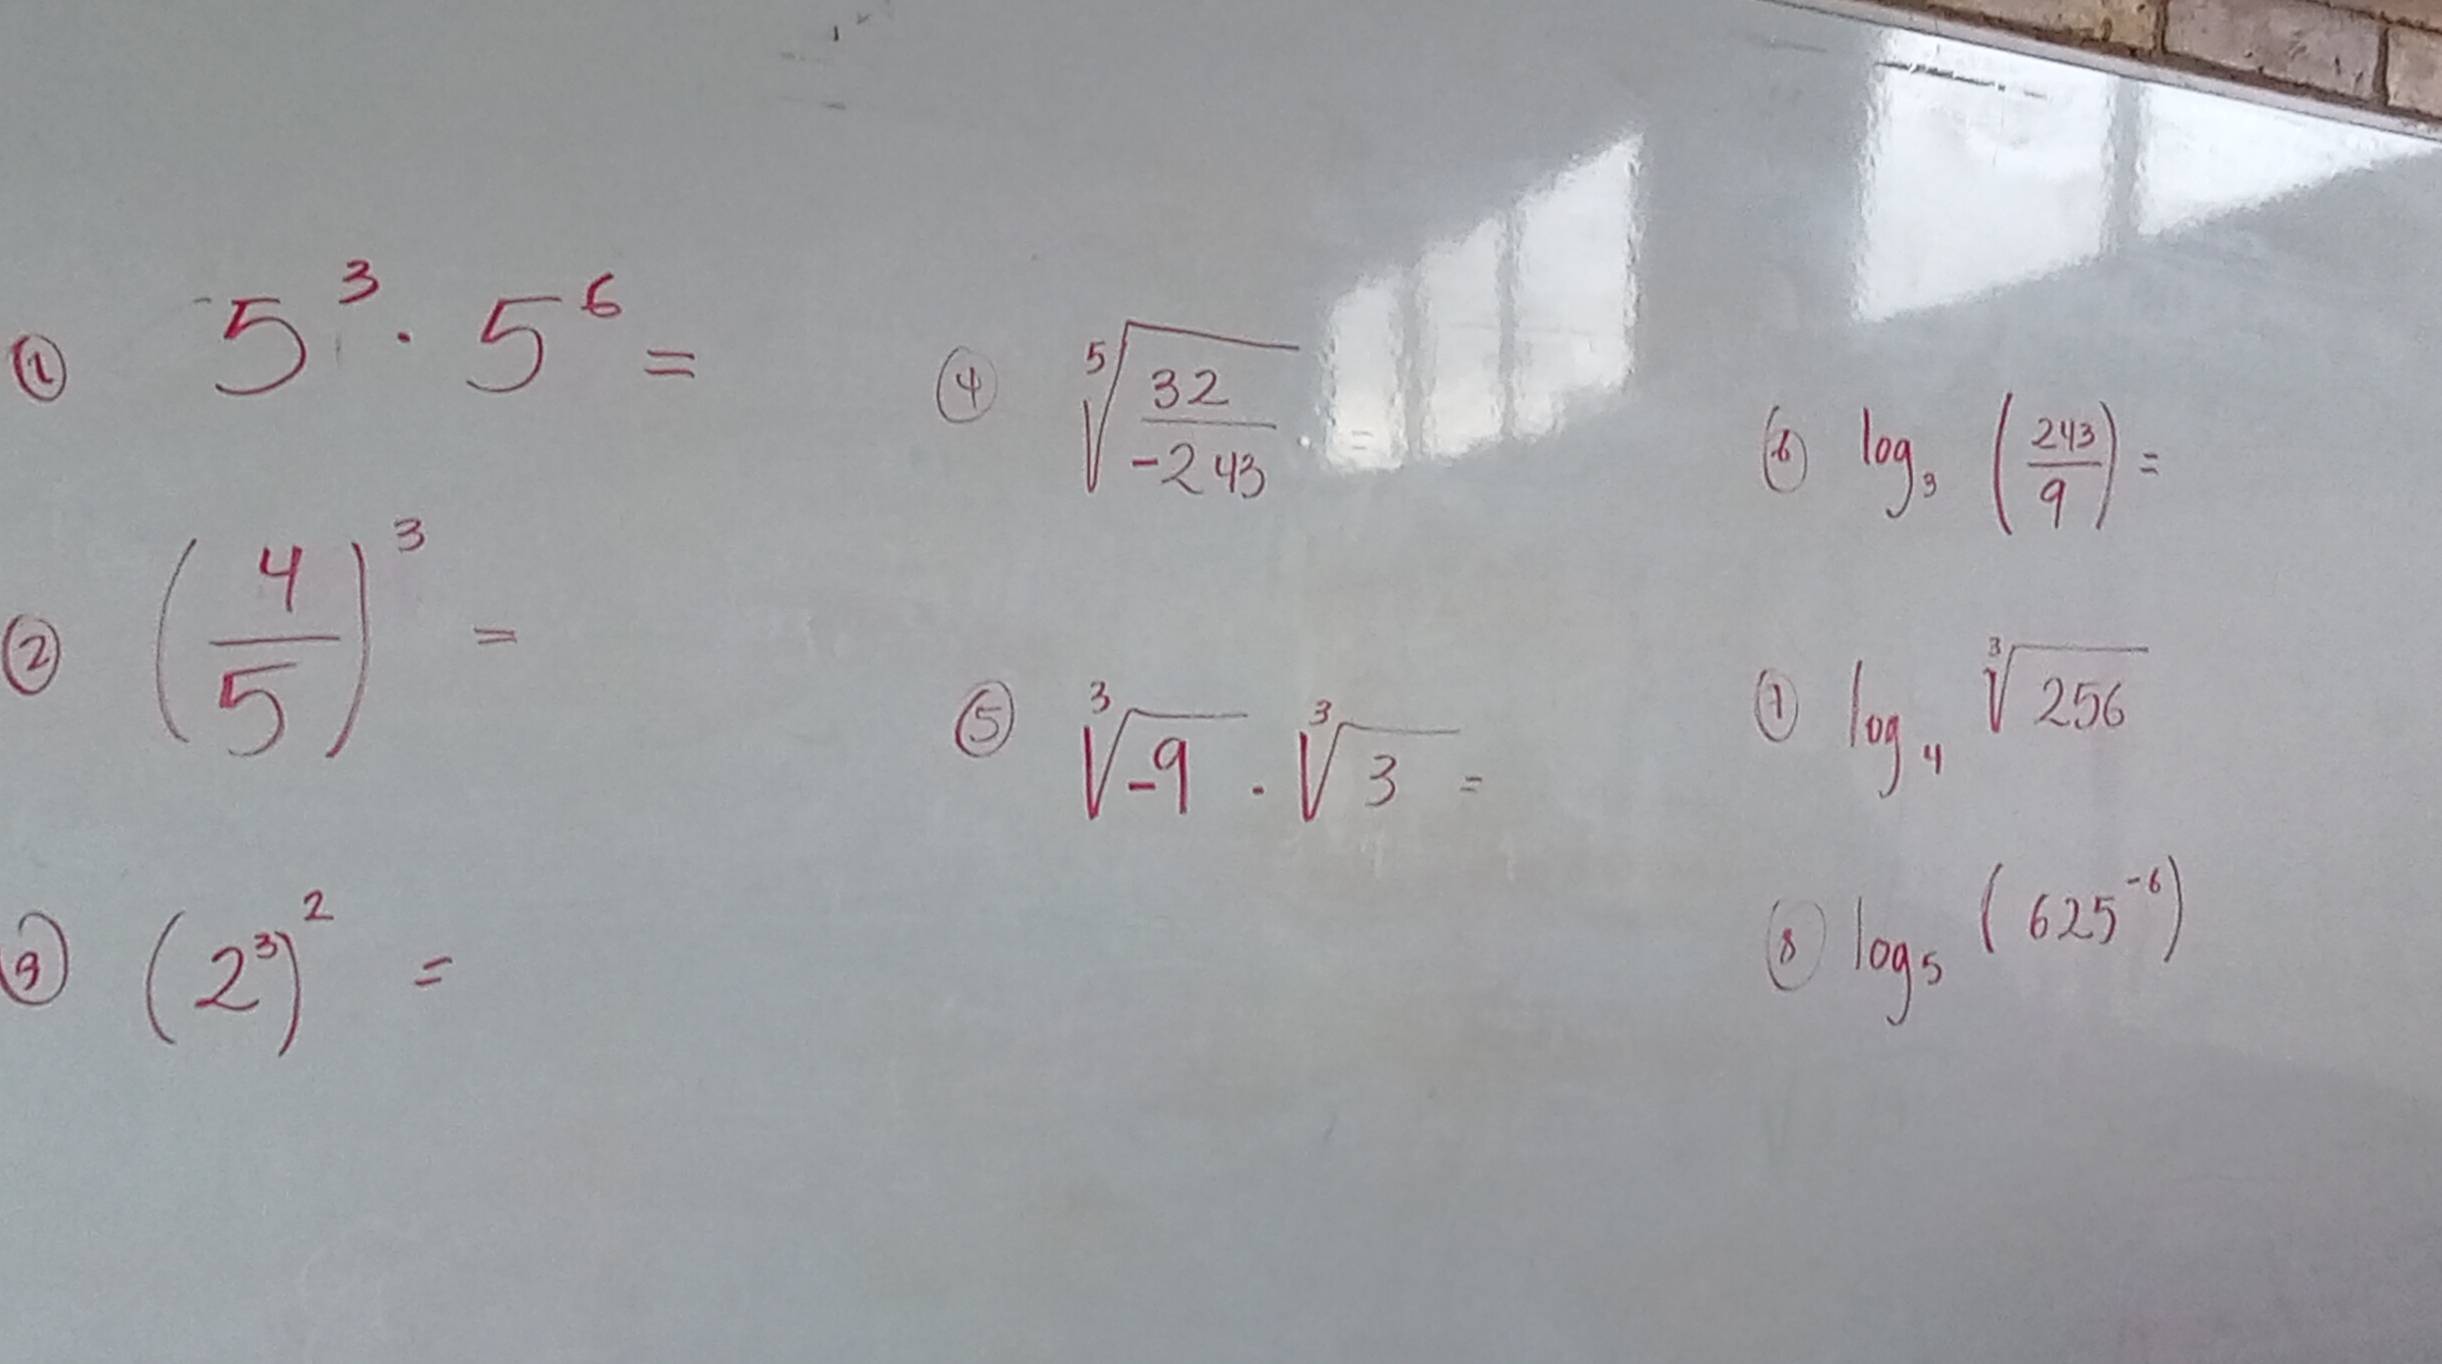 ① 5³ · 5⁶ =
② (4/5)³ =
③ (2³)² =
④ ⁵√(32/-243) =
⑤ ³√-9 · ³√3 =
⑥ log₃ (243/9) =
⑦ log₄ ³√256
⑧ log₅ (625⁻⁶)